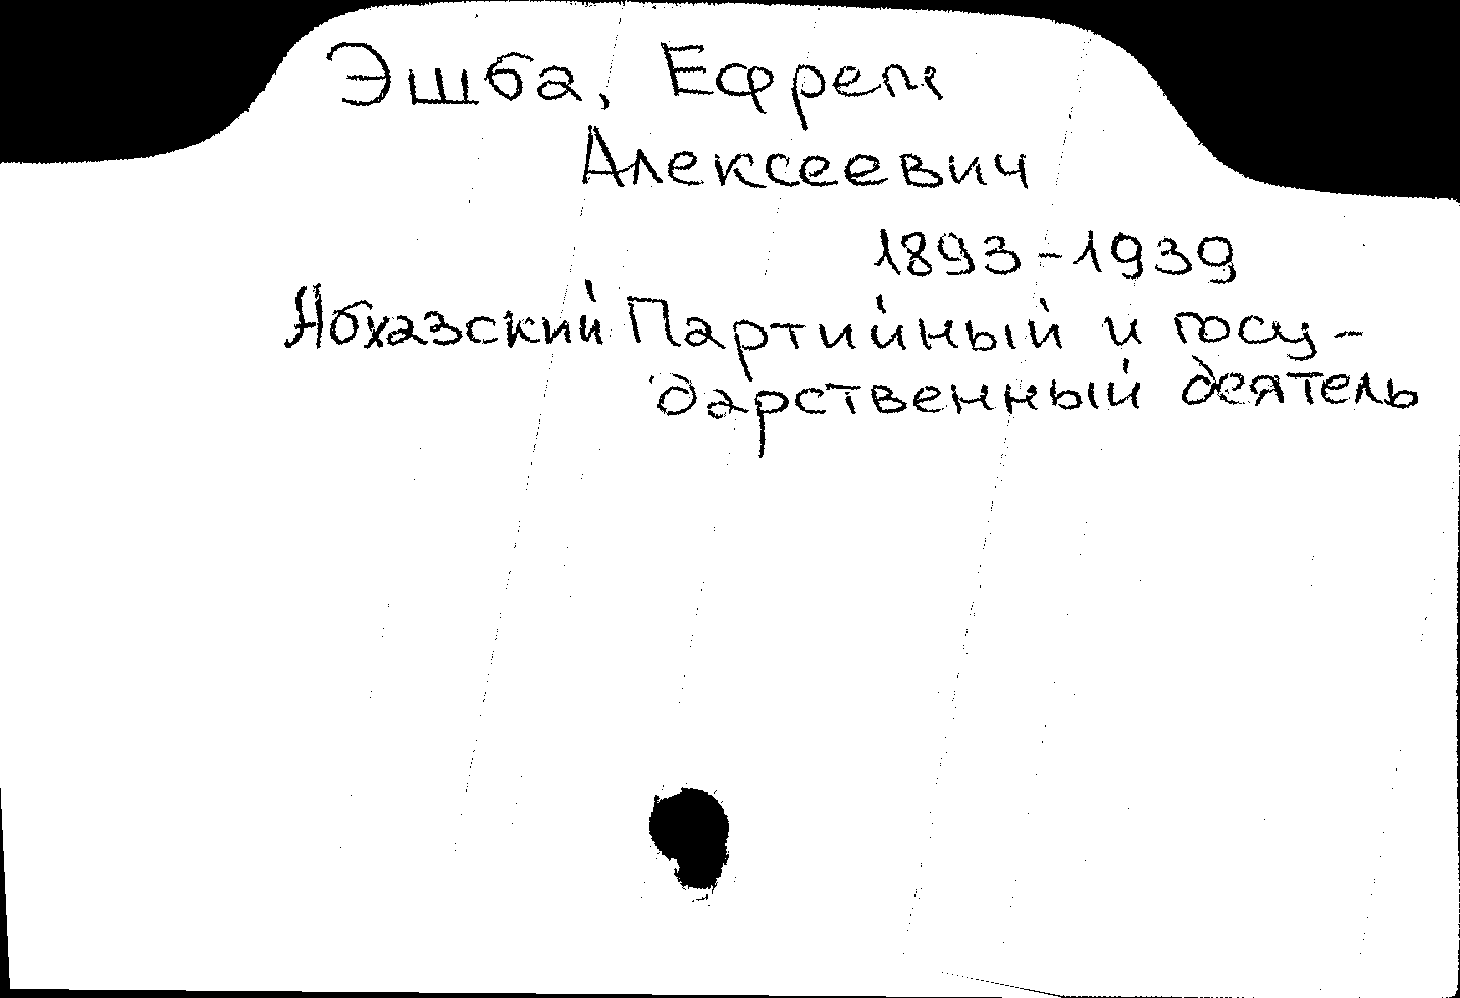 Эшба, Ефрем
Алексеевич
1893-1939
Абхазский Партийный и госу-
дарственный деятель